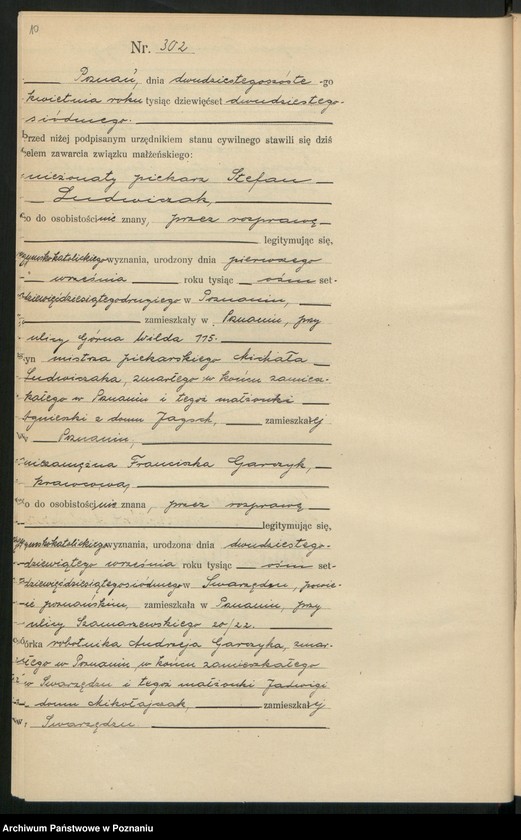 10
Nr. 302
Poznań, dnia dwudziestegoszóste -go
kwietnia roku tysiąc dziewięćset dwudziestego-
siódmego.
Przed niżej podpisanym urzędnikiem stanu cywilnego stawili się dziś
celem zawarcia związku małżeńskiego:
nieżonaty piekarz Stefan
Ludwiczak,
co do osobistości nie znany, przez rozprawę
legitymując się,
rzymskokatolickiego wyznania, urodzony dnia pierwszego
września roku tysiąc ośm set-
dziewięćdziesiątegodrugiego w Poznaniu,
zamieszkały w Poznaniu, przy
ulicy Górna Wilda 115.
syn mistrza piekarskiego Michała
Ludwiczaka, zmarłego w końcu zamiesz-
kałego w Poznaniu i tegoż małżonki
Agnieszki z domu Jagsch, zamieszkałej
w Poznaniu,
niezamężna Franciszka Garczyk,
krawcowa,
co do osobistości nie znana, przez rozprawę
legitymując się,
rzymskokatolickiego wyznania, urodzona dnia dwudziestego-
dziewiątego września roku tysiąc ośm set-
dziewięćdziesiątegosiódmego w Swarzędzu, powie-
cie poznańskim, zamieszkała w Poznaniu, przy
ulicy Szamarzewskiego 20/22.
córka robotnika Andrzeja Garczyka, zmar-
łego w Poznaniu, w końcu zamieszkałego
w Swarzędzu i tegoż małżonki Jadwigi
z domu Mikołajczak, zamieszkałej
w Swarzędzu
Archiwum Państwowe w Poznaniu